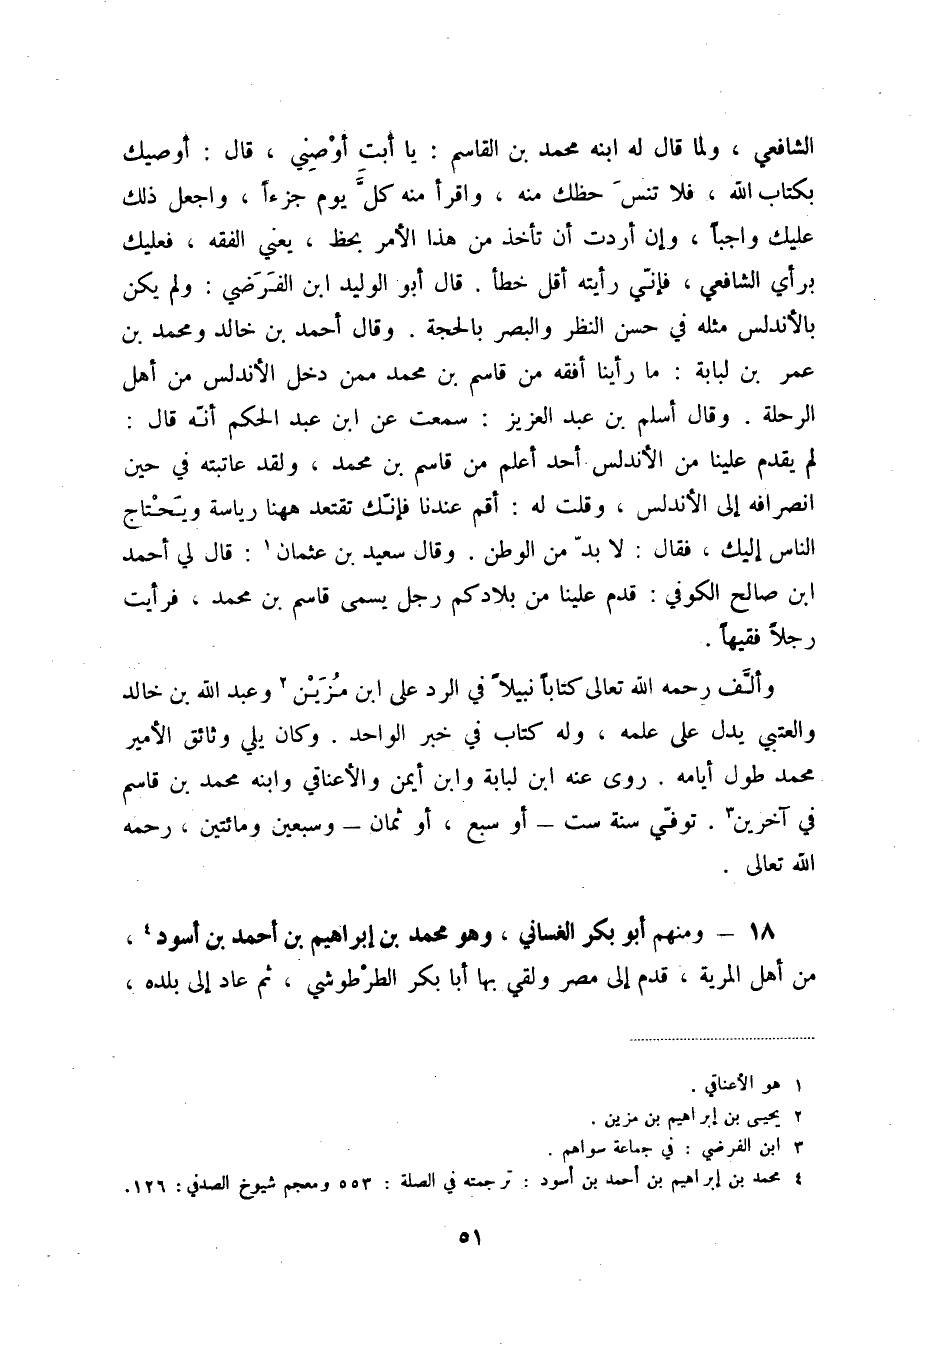 الشافعي ، ولما قال له ابنه محمد بن القاسم : يا أبتِ أوْصِني ، قال : أوصيك
بكتاب الله ، فلا تنسَ حظك منه ، واقرأ منه كلَّ يوم جزءاً ، واجعل ذلك
عليك واجباً ، وإن أردت أن تأخذ من هذا الأمر بحظ ، يعني الفقه ، فعليك
برأي الشافعي ، فإنّي رأيته أقل خطأ . قال أبو الوليد ابن الفَرَضي : ولم يكن
بالأندلس مثله في حسن النظر والبصر بالحجة . وقال أحمد بن خالد ومحمد بن
عمر بن لبابة : ما رأينا أفقه من قاسم بن محمد ممن دخل الأندلس من أهل
الرحلة . وقال أسلم بن عبد العزيز : سمعت عن ابن عبد الحكم أنّه قال :
لم يقدم علينا من الأندلس أحد أعلم من قاسم بن محمد ، ولقد عاتبته في حين
انصرافه إلى الأندلس ، وقلت له : أقم عندنا فإنّك تقتعد ههنا رياسة ويَحْتاج
الناس إليك ، فقال : لا بدّ من الوطن . وقال سعيد بن عثمان ١ : قال لي أحمد
ابن صالح الكوفي : قدم علينا من بلادكم رجل يسمى قاسم بن محمد ، فرأيت
رجلاً فقيهاً .
وألَّف رحمه الله تعالى كتاباً نبيلاً في الرد على ابن مُزَيْن ٢ وعبد الله بن خالد
والعتبي يدل على علمه ، وله كتاب في خبر الواحد . وكان يلي وثائق الأمير
محمد طول أيامه . روى عنه ابن لبابة وابن أيمن والأعناقي وابنه محمد بن قاسم
في آخرين٣ . توفّي سنة ست – أو سبع ، أو ثمان – وسبعين ومائتين ، رحمه
الله تعالى .
١٨ – ومنهم أبو بكر الغساني ، وهو محمد بن إبراهيم بن أحمد بن أسود ٤ ،
من أهل المرية ، قدم إلى مصر ولقي بها أبا بكر الطرْطوشي ، ثم عاد إلى بلده ،
١ هو الأعناقي .
٢ يحيى بن إبراهيم بن مزين .
٣ ابن الفرضي : في جماعة سواهم .
٤ محمد بن إبراهيم بن أحمد بن أسود : ترجمته في الصلة : ٥٥٣ ومعجم شيوخ الصدفي : ١٢٦.
٥١